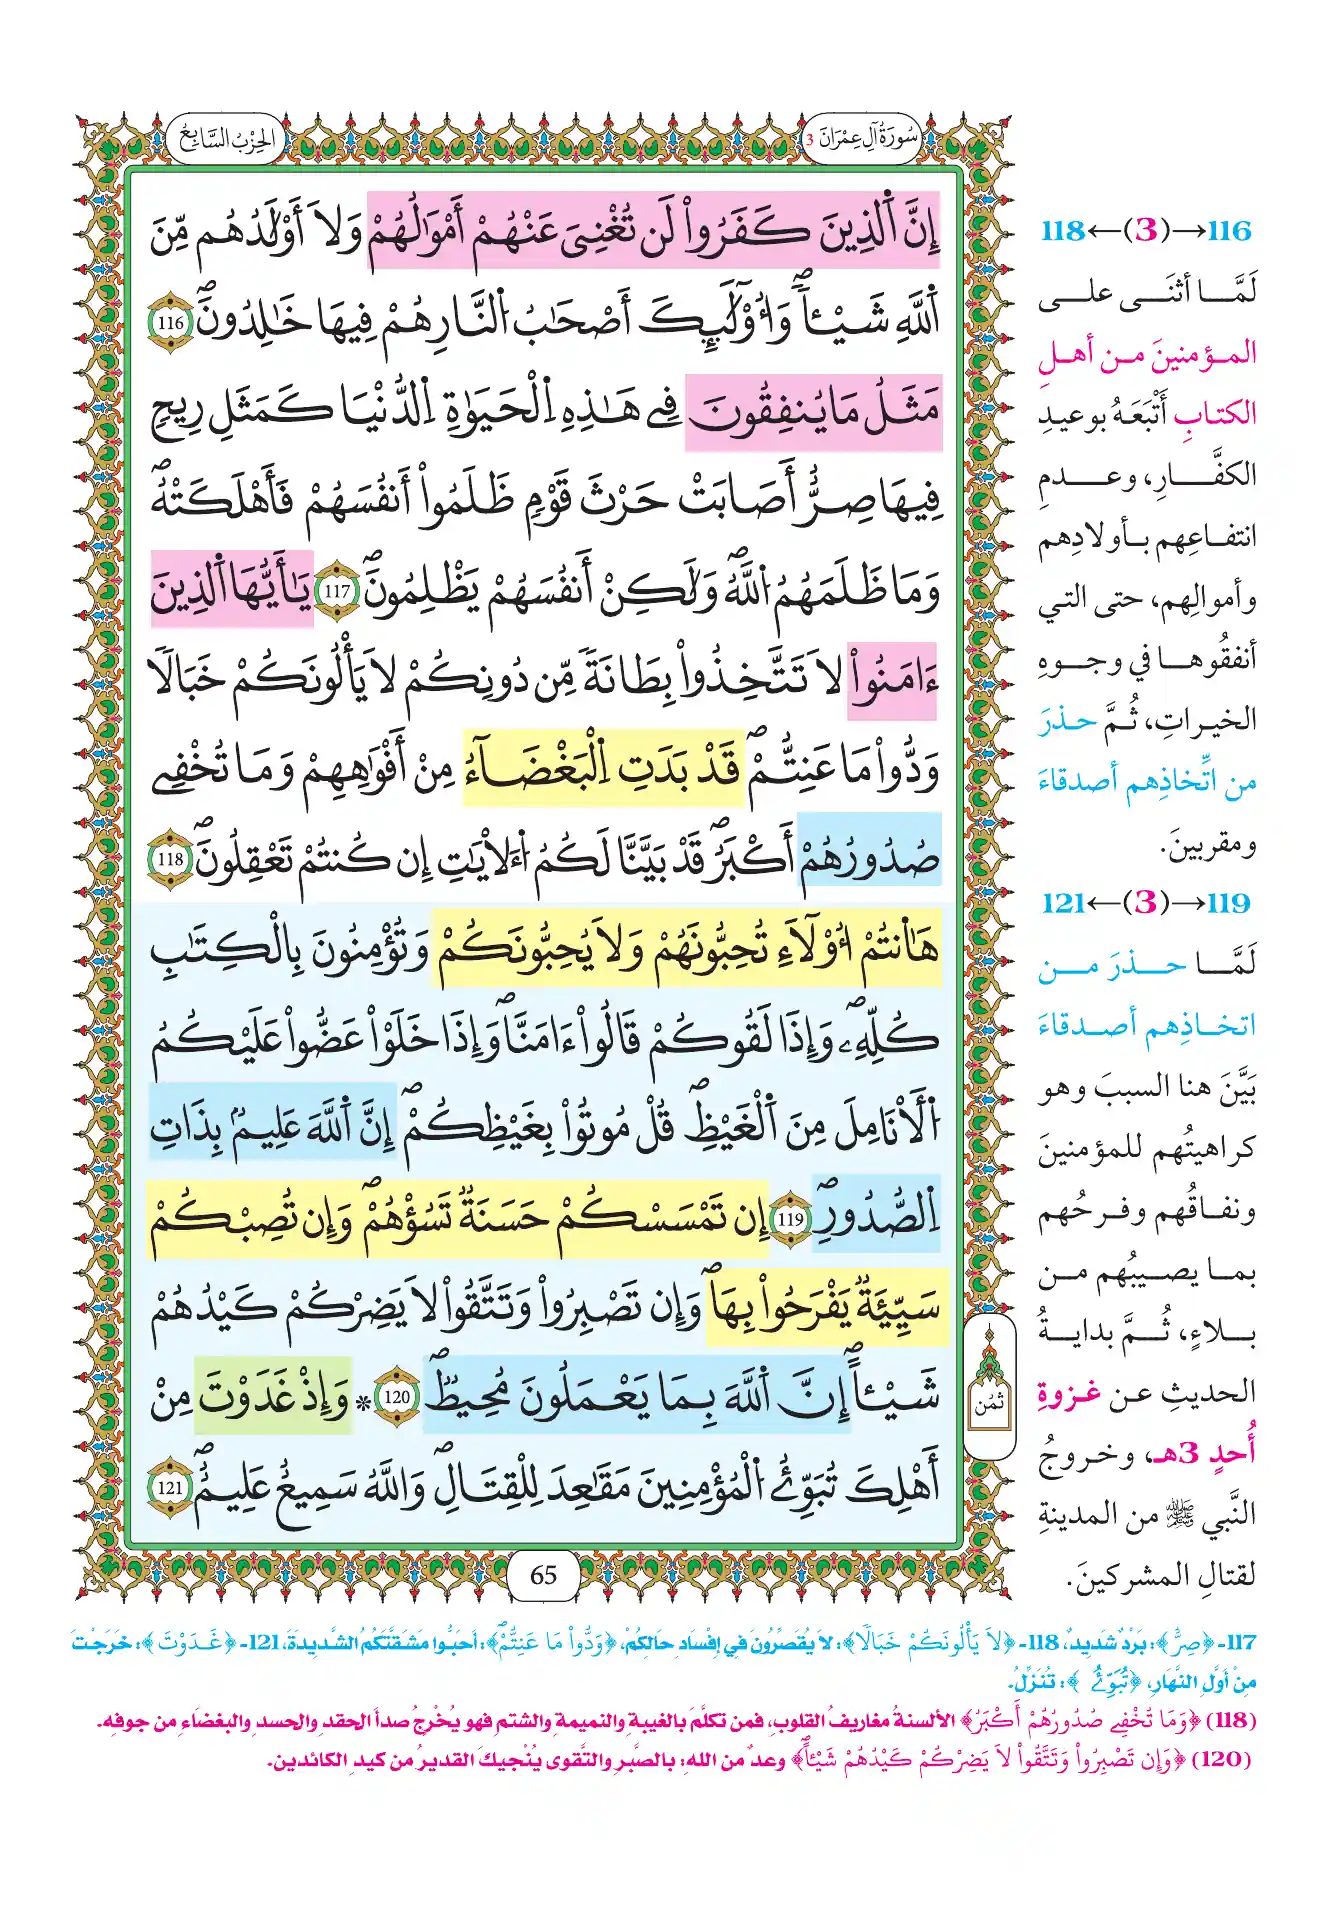 سُورَةُ آلِ عِمْرَانَ 3
الحِزْبُ السَّابِعُ
إِنَّ اَ۬لذِينَ كَفَرُواْ لَن تُغْنِيَ عَنْهُمْ أَمْوَٰلُهُمْ وَلَا أَوْلَٰدُهُم مِّنَ
اَ۬للَّهِ شَيْـٔاٗۖ وَأُوْلَٰٓئِكَ أَصْحَٰبُ اُ۬لنَّارِ هُمْ فِيهَا خَٰلِدُونَۖ 116
مَثَلُ مَا يُنفِقُونَ فِي هَٰذِهِ اِ۬لْحَيَوٰةِ اِ۬لدُّنْيَا كَمَثَلِ رِيحٖ
فِيهَا صِرٌّ أَصَابَتْ حَرْثَ قَوْمٖ ظَلَمُواْ أَنفُسَهُمْ فَأَهْلَكَتْهُۖ
وَمَا ظَلَمَهُمُ اُ۬للَّهُۖ وَلَٰكِنْ أَنفُسَهُمْ يَظْلِمُونَۖ 117 يَٰأَيُّهَا اَ۬لذِينَ
ءَامَنُواْ لَا تَتَّخِذُواْ بِطَانَةٗ مِّن دُونِكُمْ لَا يَأْلُونَكُمْ خَبَالٗا
وَدُّواْ مَا عَنِتُّمْۖ قَدْ بَدَتِ اِ۬لْبَغْضَآءُ مِنْ أَفْوَٰهِهِمْ وَمَا تُخْفِي
صُدُورُهُمْ أَكْبَرُۖ قَدْ بَيَّنَّا لَكُمُ اُ۬لْأٓيَٰتِ إِن كُنتُمْ تَعْقِلُونَۖ 118
هَٰأَنتُمْ أُوْلَآءِ تُحِبُّونَهُمْ وَلَا يُحِبُّونَكُمْ وَتُؤْمِنُونَ بِالْكِتَٰبِ
كُلِّهِۦۖ وَإِذَا لَقُوكُمْ قَالُواْ ءَامَنَّاۖ وَإِذَا خَلَوْاْ عَضُّواْ عَلَيْكُمُ
اُ۬لْأَنَامِلَ مِنَ اَ۬لْغَيْظِۖ قُلْ مُوتُواْ بِغَيْظِكُمْۖ إِنَّ اَ۬للَّهَ عَلِيمُۢ بِذَاتِ
اِ۬لصُّدُورِۖ 119 إِن تَمْسَسْكُمْ حَسَنَةٞ تَسُؤْهُمْۖ وَإِن تُصِبْكُمْ
سَيِّئَةٞ يَفْرَحُواْ بِهَاۖ وَإِن تَصْبِرُواْ وَتَتَّقُواْ لَا يَضِرْكُمْ كَيْدُهُمْ
شَيْـٔاًۖ إِنَّ اَ۬للَّهَ بِمَا يَعْمَلُونَ مُحِيطٞۖ 120 * وَإِذْ غَدَوْتَ مِنْ
أَهْلِكَ تُبَوِّئُ اُ۬لْمُؤْمِنِينَ مَقَٰعِدَ لِلْقِتَالِۖ وَاللَّهُ سَمِيعٌ عَلِيمٌۖ 121
ثُمُن
65
116→(3)←118
لَمَّا أثنَى على
المؤمنينَ من أهلِ
الكتابِ أَتْبَعَهُ بوعيدِ
الكفَّارِ، وعدمِ
انتفاعِهم بأولادِهم
وأموالِهم، حتى التي
أنفقُوها في وجوهِ
الخيراتِ، ثُمَّ حذرَ
من اتِّخاذِهم أصدقاءَ
ومقربينَ.
119→(3)←121
لَمَّا حذرَ من
اتخاذِهم أصدقاءَ
بَيَّنَ هنا السببَ وهو
كراهيتُهم للمؤمنينَ
ونفاقُهم وفرحُهم
بما يصيبُهم من
بلاءٍ، ثُمَّ بدايةُ
الحديثِ عن غزوةِ
أُحدٍ 3هـ، وخروجُ
النَّبي ﷺ من المدينةِ
لقتالِ المشركينَ.
117- ﴿صِرٌّ﴾: بَرْدٌ شَدِيدٌ، 118- ﴿لَا يَأْلُونَكُمْ خَبَالٗا﴾: لا يُقَصِّرُونَ في إفْسَادِ حَالِكُمْ، ﴿وَدُّواْ مَا عَنِتُّمْ﴾: أحَبُّوا مَشَقَّتَكُمُ الشَّدِيدَةَ، 121- ﴿غَدَوْتَ﴾: خَرَجْتَ
مِنْ أوَّلِ النَّهَارِ، ﴿تُبَوِّئُ﴾: تُنَزِّلُ.
(118) ﴿وَمَا تُخْفِي صُدُورُهُمْ أَكْبَرُ﴾ الألسنةُ مغاريفُ القلوبِ، فمن تكلَّمَ بالغيبةِ والنميمةِ والشتمِ فهو يُخْرِجُ صدأَ الحقدِ والحسدِ والبغضَاءِ من جوفِه.
(120) ﴿وَإِن تَصْبِرُواْ وَتَتَّقُواْ لَا يَضِرْكُمْ كَيْدُهُمْ شَيْـٔاًۖ﴾ وعدٌ من الله: بالصَّبرِ والتَّقوى يُنْجيكَ القديرُ من كيدِ الكائدين.